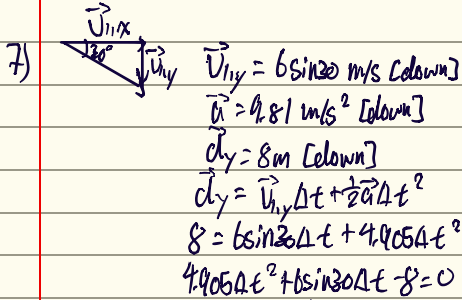 7)
v⃗₁,x
30°
v⃗₁,y
v⃗₁,y = 6sin30 m/s [down]
a⃗ = 9.81 m/s² [down]
d⃗y = 8m [down]
d⃗y = v⃗₁,yΔt + ½a⃗Δt²
8 = 6sin30Δt + 4.905Δt²
4.905Δt² + 6sin30Δt - 8 = 0